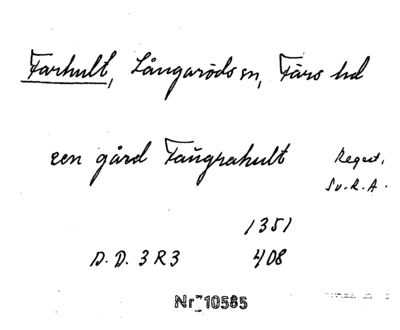 Farhult, Långaröds sn, Färs hd
een gård Fañgrahult Regest,
Sv. R. A.
1351
D. D. 3 R 3 408
Nr 10585